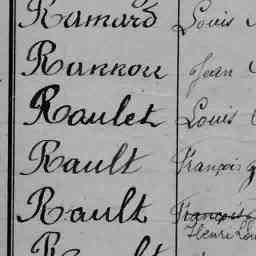 Ramard Louis
Rannou Jean
Raulet Louis
Rault François
Rault François
Henri Lou